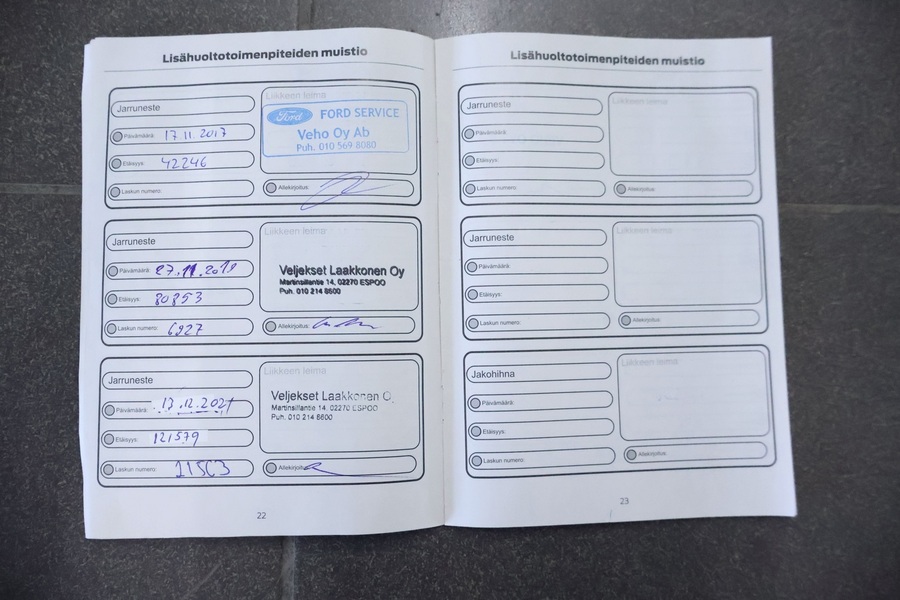 Lisähuoltotoimenpiteiden muistio
Jarruneste
Päivämäärä: 17 11. 2017
Etäisyys: 42246
Laskun numero:
Liikkeen leima
Ford FORD SERVICE
Veho Oy Ab
Puh. 010 569 8080
Allekirjoitus:
Jarruneste
Päivämäärä: 27.11.2019
Etäisyys: 80853
Laskun numero: 6927
Liikkeen leima
Veljekset Laakkonen Oy
Martinsillantie 14, 02270 ESPOO
Puh. 010 214 8600
Allekirjoitus:
Jarruneste
Päivämäärä: 13.12.2021
Etäisyys: 121579
Laskun numero:
Liikkeen leima
Veljekset Laakkonen O
Martinsillantie 14, 02270 ESPOO
Puh. 010 214 8600
22
Lisähuoltotoimenpiteiden muistio
Jarruneste
Päivämäärä:
Etäisyys:
Laskun numero:
Liikkeen leima
Allekirjoitus:
Jarruneste
Päivämäärä:
Etäisyys:
Laskun numero:
Liikkeen leima
Allekirjoitus:
Jakohihna
Päivämäärä:
Etäisyys:
Laskun numero:
Liikkeen leima
Allekirjoitus:
23